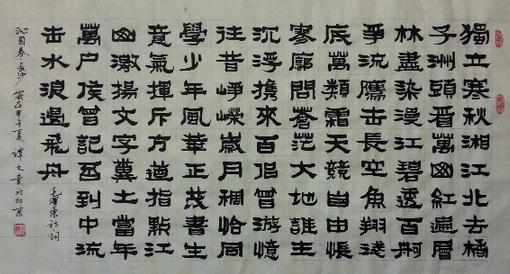 獨立寒秋湘江北去橘
子洲頭看萬山紅遍層
林盡染漫江碧透百舸
爭流鷹击長空魚翔淺
底萬類霜天競自由悵
寥廓問蒼茫大地誰主
沉浮攜來百侣曾游憶
往昔崢嶸歲月稠恰同
學少年風華正茂書生
意氣揮斥方遒指點江
山激揚文字糞土當年
萬户侯曾記否到中流
击水浪遏飛舟
毛澤東詩詞
沁园春長沙